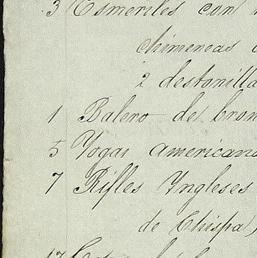 3 Esmeriles con
chimeneas
2 destonilla
1 Balero de bron
5 Yogas americano
7 Rifles Yngleses
de Chispa,
17